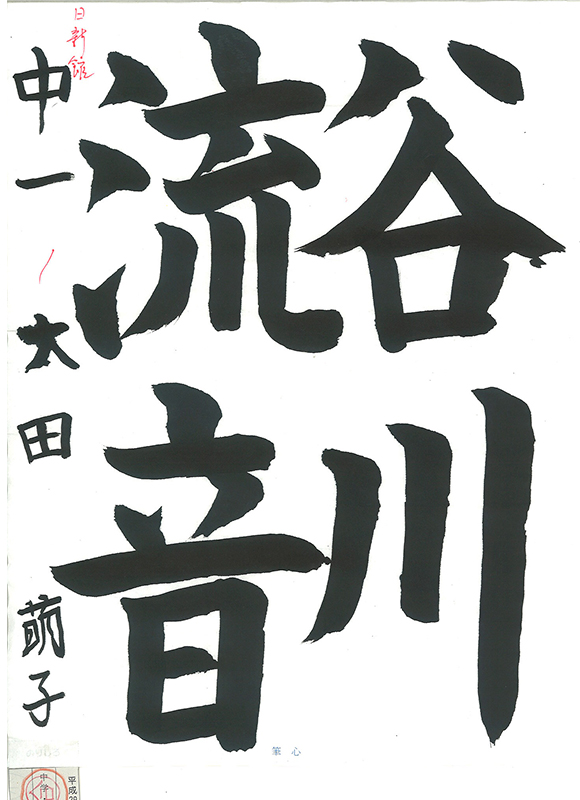 谷川
流音
日新館
中一 太田 萌子
心筆
平成29
中学